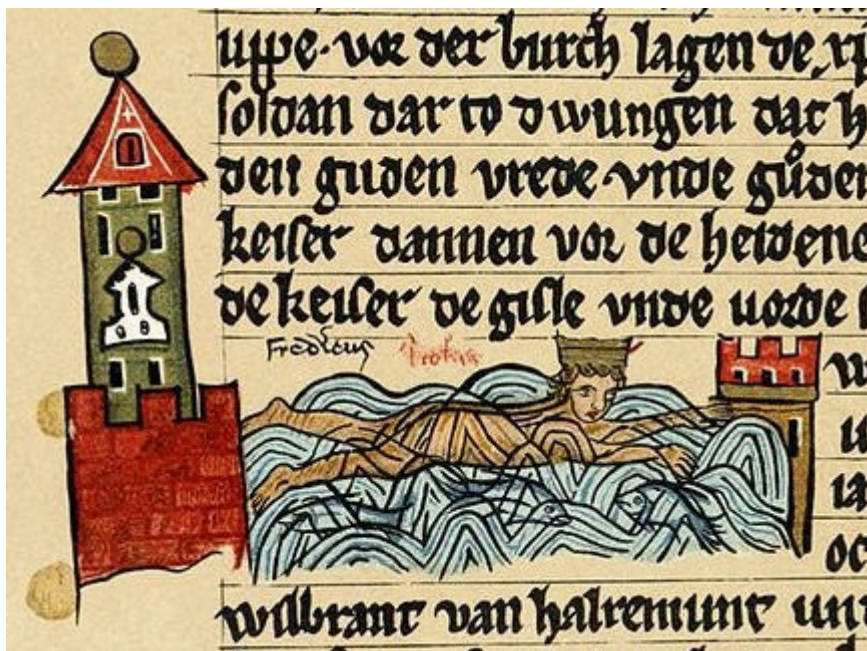 uppe · vor der burch lagen de
soldan dar to dwungen dat
den guden vrede · vnde gůden
keiser dannen vor de heidene
de keiser de gisle vnde uorde
Fredricus
wilbrant van halremunt